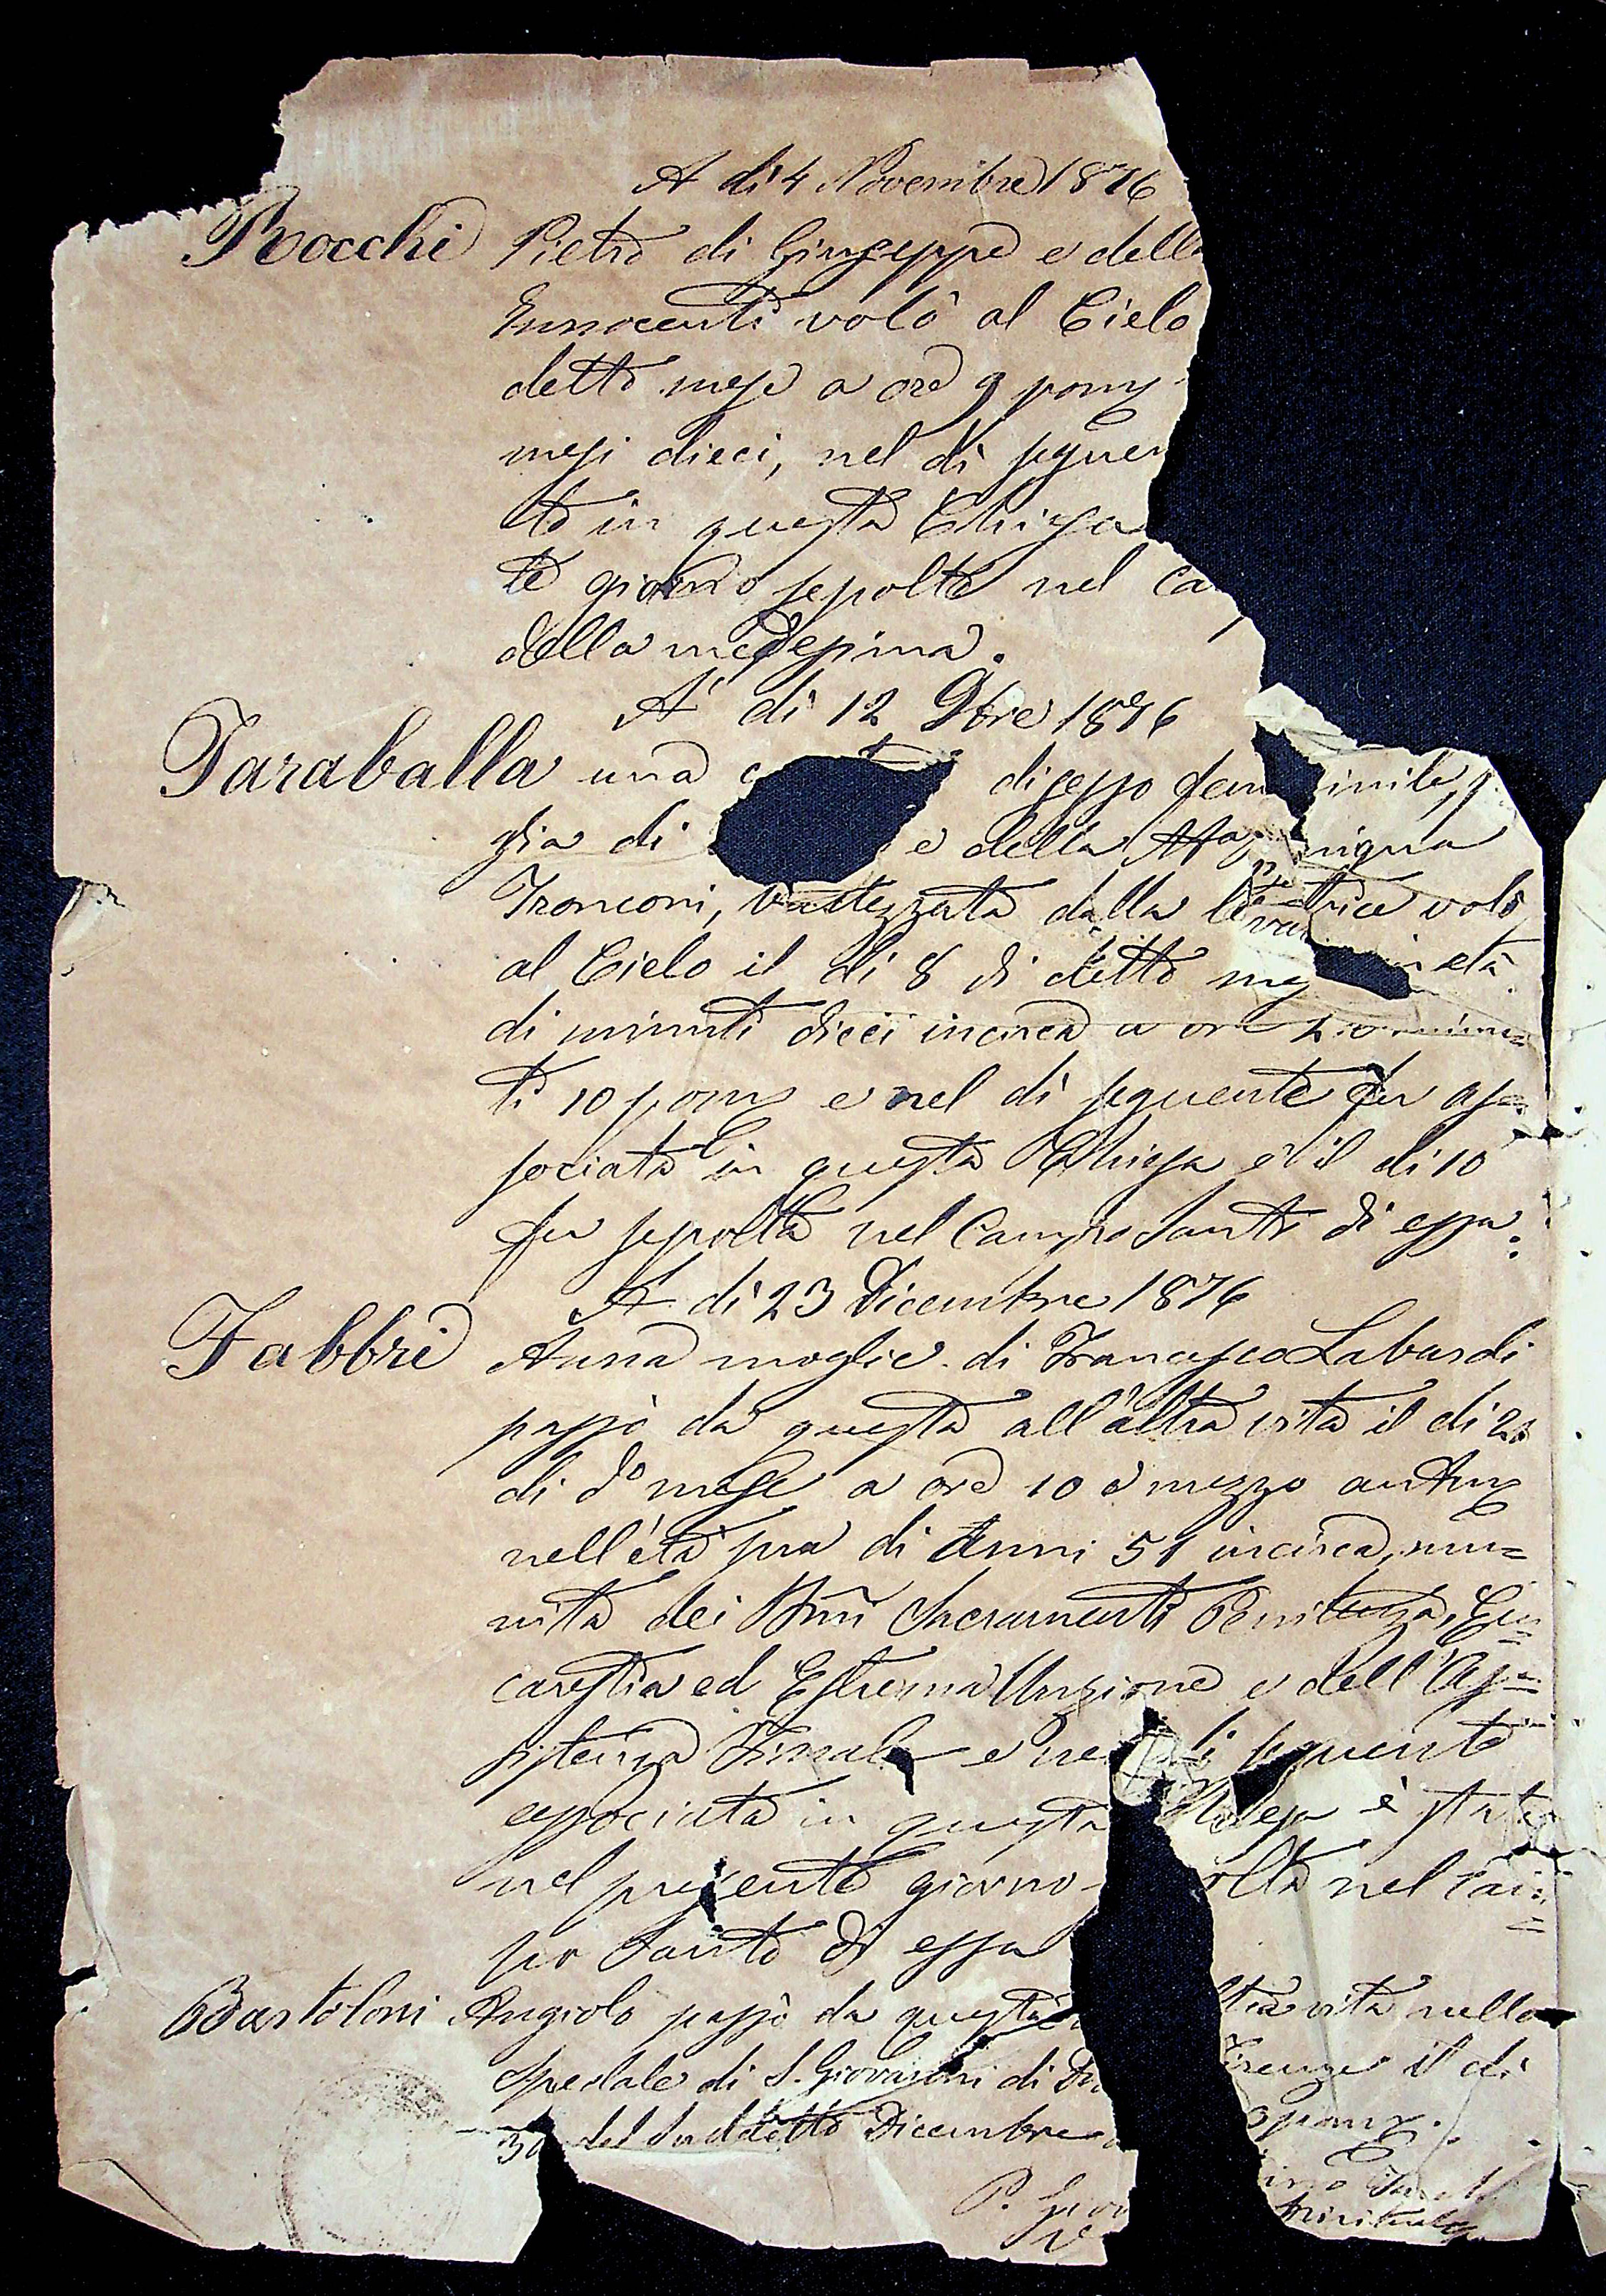 A dì 4 Novembre 1876
Rocchi Pietro di Giuseppe e della
Innocenti volò al Cielo
detto mese a ore 9 pomᵉ
mesi dieci, nel dì seguen
to in questa Chiesa
te giorno sepolto nel Ca
della medesima.
A dì 12 9bre 1876
Taraballa una di sesso femminile, f
glia di e della
Tronconi, battezzata dalla levatrice volò
al Cielo il dì 8 di detto mes in età
di minuti dieci incirca a ore minu=
ti 10 pomᵉ e nel dì seguente fu as=
sociata in questa Chiesa e il dì 10
fu sepolta nel Campo Santo di essa.
A dì 23 Dicembre 1876
Fabbri Anna moglie di Francesco Labardi
passò da questa all'altra vita il dì
di dº mese a ore 10 e mezzo antᵉ
nell'età sua di Anni 51 incirca, mu=
nita dei SSmi Sacramenti Penitenza, Eu=
carestia ed Estrema Unzione e dell'As=
sistenza Finale e nel dì seguente
associata in questa Chiesa è stata
nel presente giorno olta nel Cam=
po Santo di essa
Bartoloni Angiolo passò da questa ltra vita nello
Spedale di S. Giovanni di D irenze il dì
30 del suddetto Dicembre pomᵉ.
P.